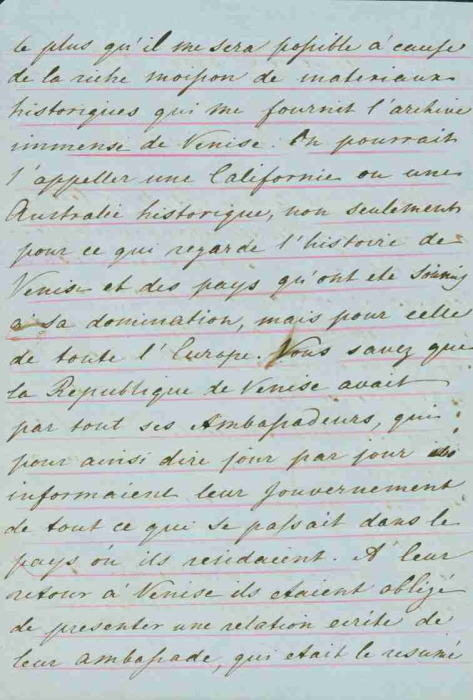 le plus qu'il me sera possible à cause
de la riche moisson de materiaux
historiques qui me fournit l'archive
immense de Venise. On pourrait
l'appeller une Californie ou une
Australie historique, non seulement
pour ce qui regarde l'histoire de
Venise et des pays qu'ont eté soumis
à sa domination, mais pour celle
de toute l'Europe. Vous savez que
la Republique de Venise avait
par tout ses Ambassadeurs, qui
pour ainsi dire jour par jour
informaient leur Gouvernement
de tout ce que se passait dans le
pays où ils residaient. A leur
retour à Venise ils etaient obligé
de presenter une relation ecrite de
leur ambassade, qui etait le resumé